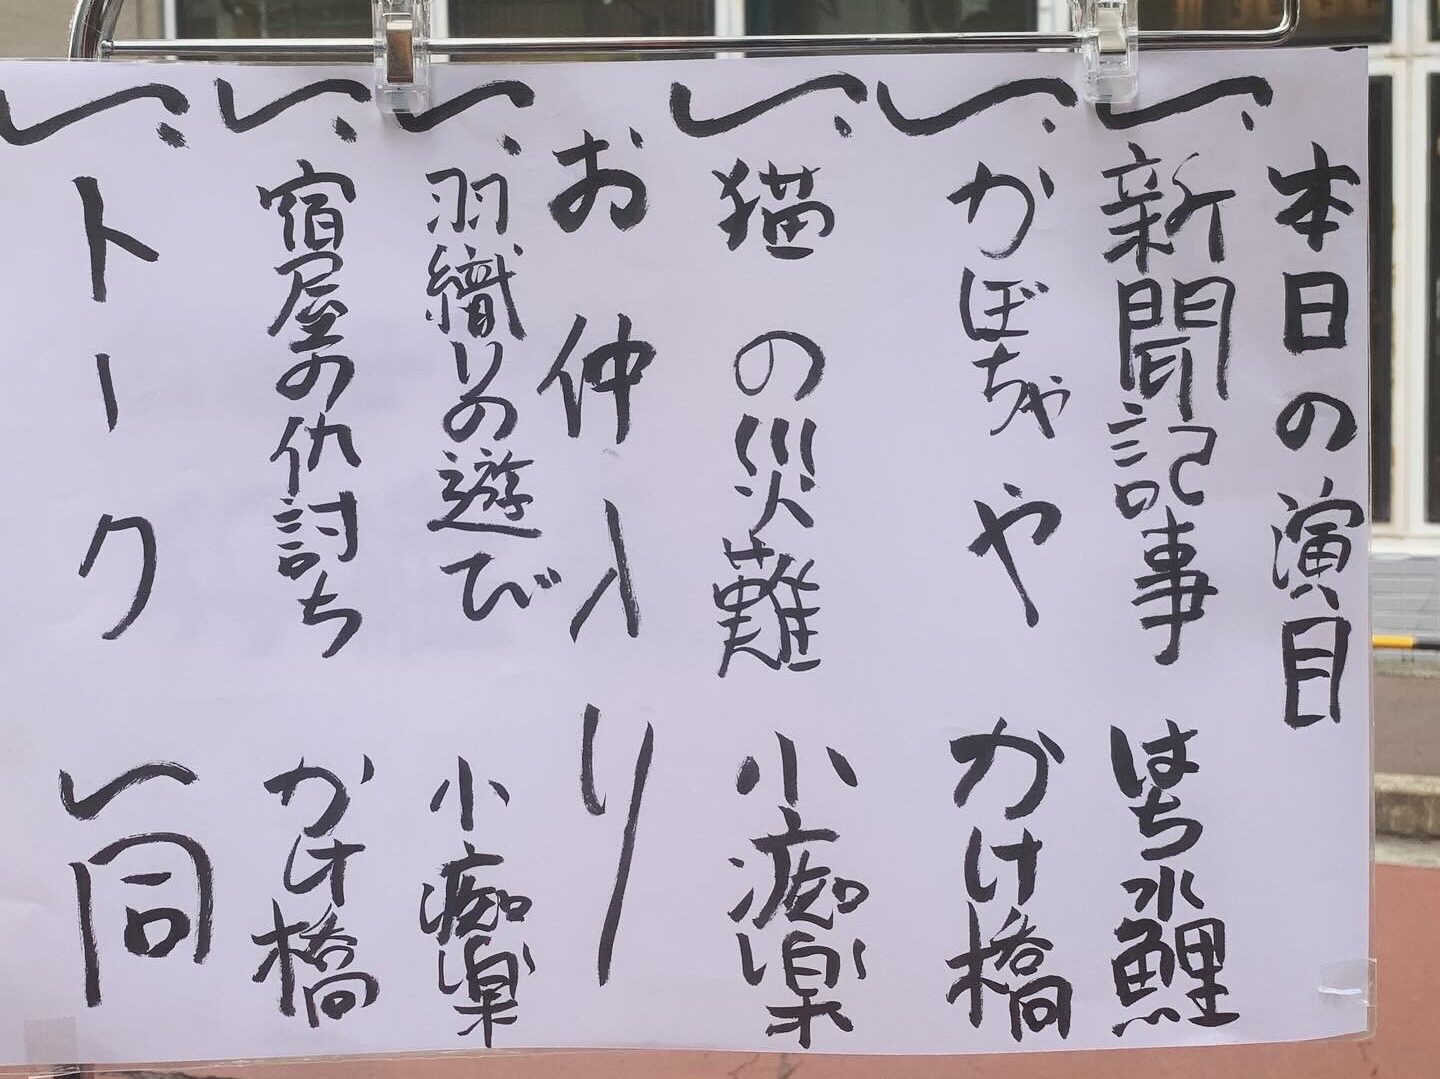 本日の演目
一、新聞記事 はち水鯉
一、かぼちゃや かけ橋
一、猫の災難 小痴楽
お仲入り
一、羽織りの遊び 小痴楽
一、宿屋の仇討ち かけ橋
一、トーク 一同